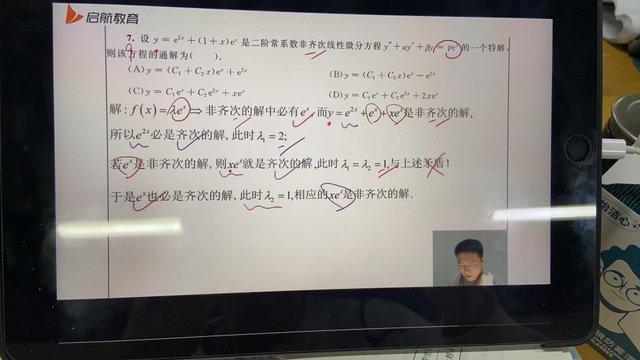 启航教育
7. 设 y = e²ˣ + (1+x)eˣ 是二阶常系数非齐次线性微分方程 y″ + αy′ + βy = γeˣ 的一个特解,
则该方程的通解为( ).
(A) y = (C₁ + C₂x)eˣ + e²ˣ (B) y = (C₁ + C₂x)eˣ − e²ˣ
(C) y = C₁eˣ + C₂e²ˣ + xeˣ (D) y = C₁eˣ + C₂e²ˣ + 2xeˣ
解: f(x) = λeˣ ⇒ 非齐次的解中必有eˣ, 而y = e²ˣ + eˣ + xeˣ是非齐次的解,
所以e²ˣ必是齐次的解, 此时 λ₁ = 2;
若eˣ是非齐次的解, 则xeˣ就是齐次的解, 此时 λ₁ = λ₂ = 1, 与上述矛盾!
于是eˣ也必是齐次的解, 此时 λ₂ = 1, 相应的xeˣ是非齐次的解.